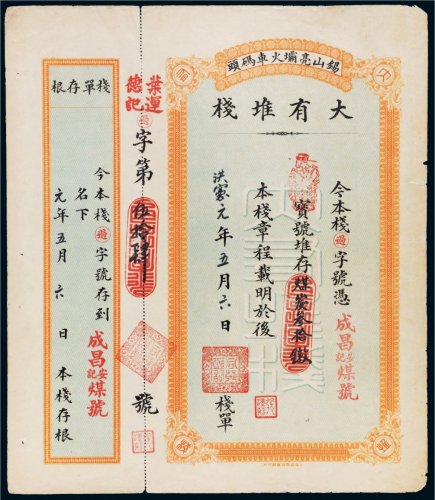 錫山亮壩火車碼頭
大有堆棧
今本棧 字號憑
成昌安記煤號
寶號堆存煤炭叁拾傲
本棧章程載明於後
洪憲元年五月六日
棧單
葉運德記
字第伍拾肆號
棧單存根
今本棧 字號存到
成昌安記煤號
名下
元年五月六日
本棧存根